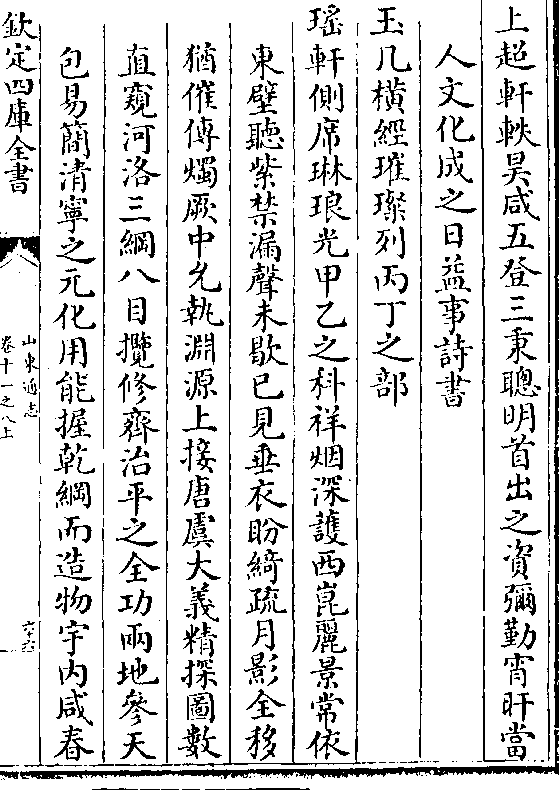 上超軒軼昊咸五登三秉聰明首出之資彌勤宵旰當
人文化成之日益事詩書
玉几橫經璀璨列丙丁之部
瑶軒側席琳琅光甲乙之科祥烟深護西崑麗景常依
東壁聽紫禁漏聲未歇已見垂衣盼綺疏月影全移
猶催傳燭厥中允執淵源上接唐虞大義精探圖數
直窺河洛三綱八目攬修齊治平之全功兩地參天
包易簡清寧之元化用能握乾綱而造物宇内咸春
欽定四庫全書
山東通志
卷十一之八上
六十六